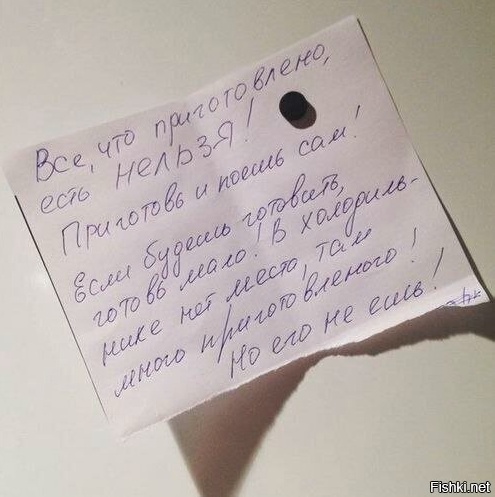 Все, что приготовлено,
есть НЕЛЬЗЯ!
Приготовь и поешь сам!
Если будешь готовить,
готовь мало! В холодиль-
нике нет место, там
много приготовленого!
Но его не ешь!
Fishki.net